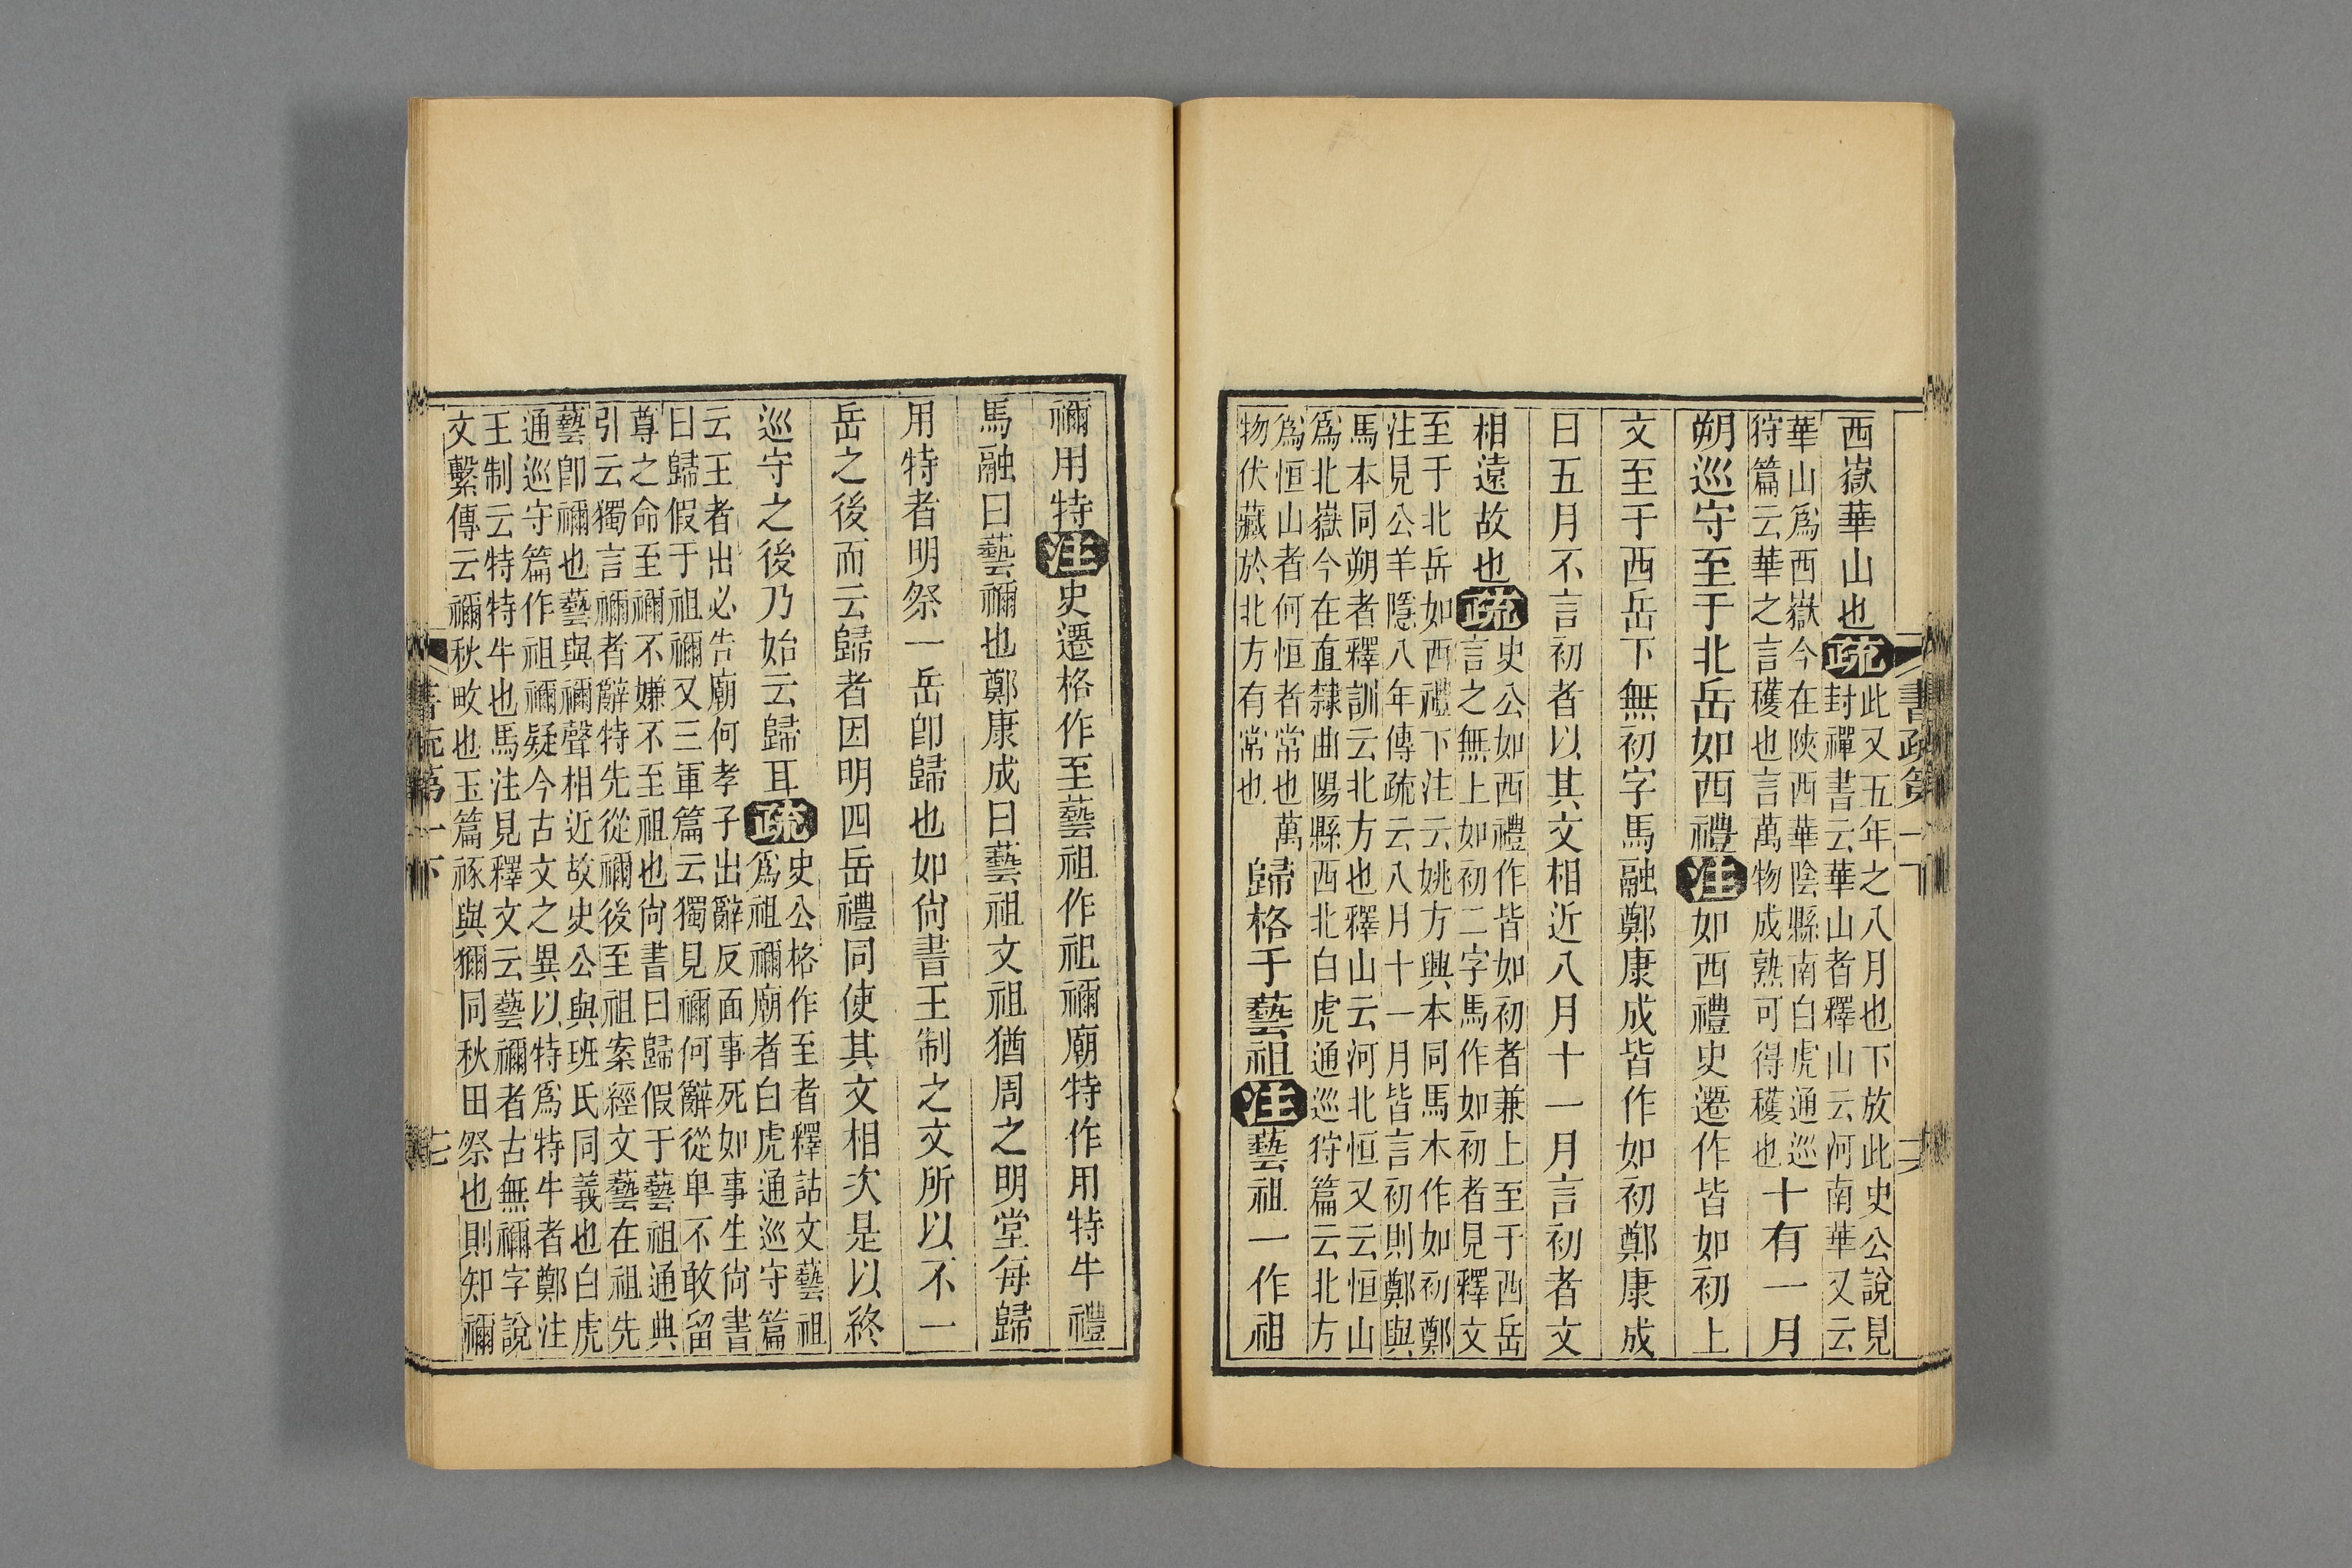 西嶽華山也疏此又五年之八月也下放此史公說見
封禪書云華山者釋山云河南華又云
華山爲西嶽今在陝西華陰縣南白虎通巡
狩篇云華之言穫也言萬物成熟可得穫也十有一月
朔巡守至于北岳如西禮注如西禮史遷作皆如初上
文至于西岳下無初字馬融鄭康成皆作如初鄭康成
曰五月不言初者以其文相近八月十一月言初者文
相遠故也疏史公如西禮作皆如初者兼上至于西岳
言之無上如初二字馬作如初者見釋文
至于北岳如西禮下注云姚方興本同馬本作如初鄭
注見公羊隱八年傳疏云八月十一月皆言初則鄭與
馬本同朔者釋訓云北方也釋山云河北恒又云恒山
爲北嶽今在直隸曲陽縣西北白虎通巡狩篇云北方
爲恒山者何恒者常也萬
物伏藏於北方有常也歸格于藝祖注藝祖一作祖
禰用特注史遷格作至藝祖作祖禰廟特作用特牛禮
馬融曰藝禰也鄭康成曰藝祖文祖猶周之明堂每歸
用特者明祭一岳卽歸也如尙書王制之文所以不一
岳之後而云歸者因明四岳禮同使其文相次是以終
巡守之後乃始云歸耳疏史公格作至者釋詁文藝祖
爲祖禰廟者白虎通巡守篇
云王者出必告廟何孝子出辭反面事死如事生尙書
曰歸假于祖禰又三軍篇云獨見禰何辭從卑不敢留
尊之命至禰不嫌不至祖也尙書曰歸假于藝祖通典
引云獨言禰者辭特先從禰後至祖案經文藝在祖先
藝卽禰也藝與禰聲相近故史公與班氏同義也白虎
通巡守篇作祖禰疑今古文之異以特爲特牛者鄭注
王制云特特牛也馬注見釋文云藝禰者古無禰字說
文繫傳云禰秋畋也玉篇祢與獮同秋田祭也則知禰
書疏第一下
十六
書疏第一下
十七